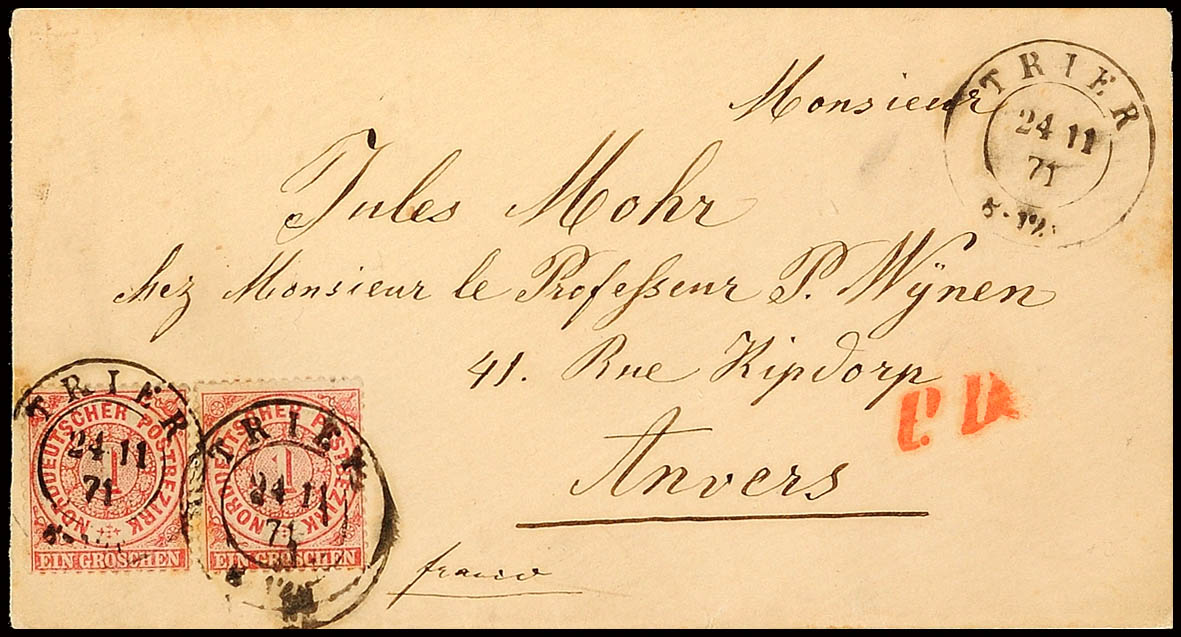 Monsieur
TRIER
24 11
71
Jules Mohr
chez Monsieur le Professeur P. Wÿnen
41. Rue Kipdorp
P.D.
Anvers
franco
TRIER
24 11
71
NORDDEUTSCHER POSTBEZIRK
1
EIN GROSCHEN
TRIER
24 11
71
NORDDEUTSCHER POSTBEZIRK
1
EIN GROSCHEN